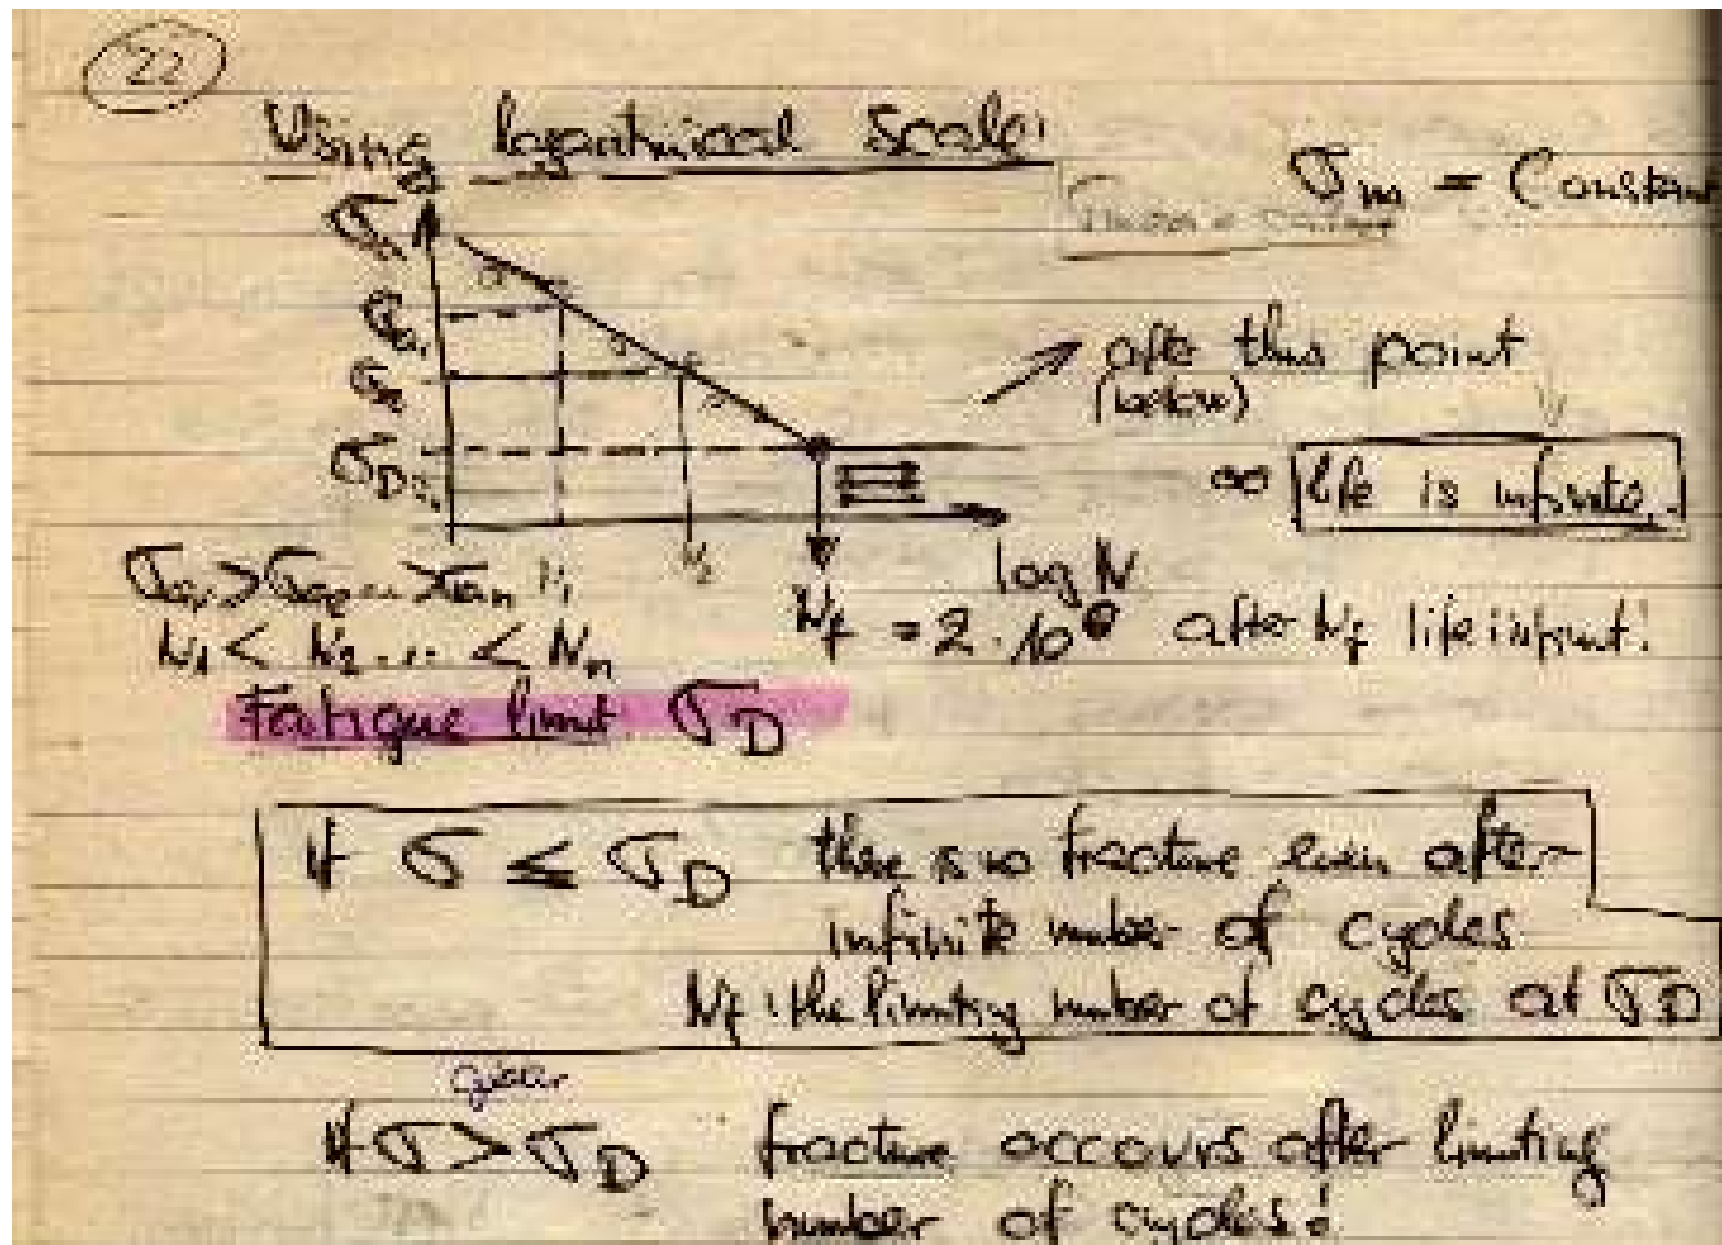 22
Using logaritmical scale
σm = Constant
σa
σa1
after this point
(below)
σD
∞ life is infinite.
N2
log N
σa1 > σa2 ... > σan N1
Nf = 2.10 after Nf life infinit!
N1 < N2 ... < Nn
Fatigue limit σD
If σ ≤ σD there is no fracture even after
infinite number of cycles
Nf : the limiting number of cycles at σD
If σ > σD fracture occours after limiting
number of cycles!